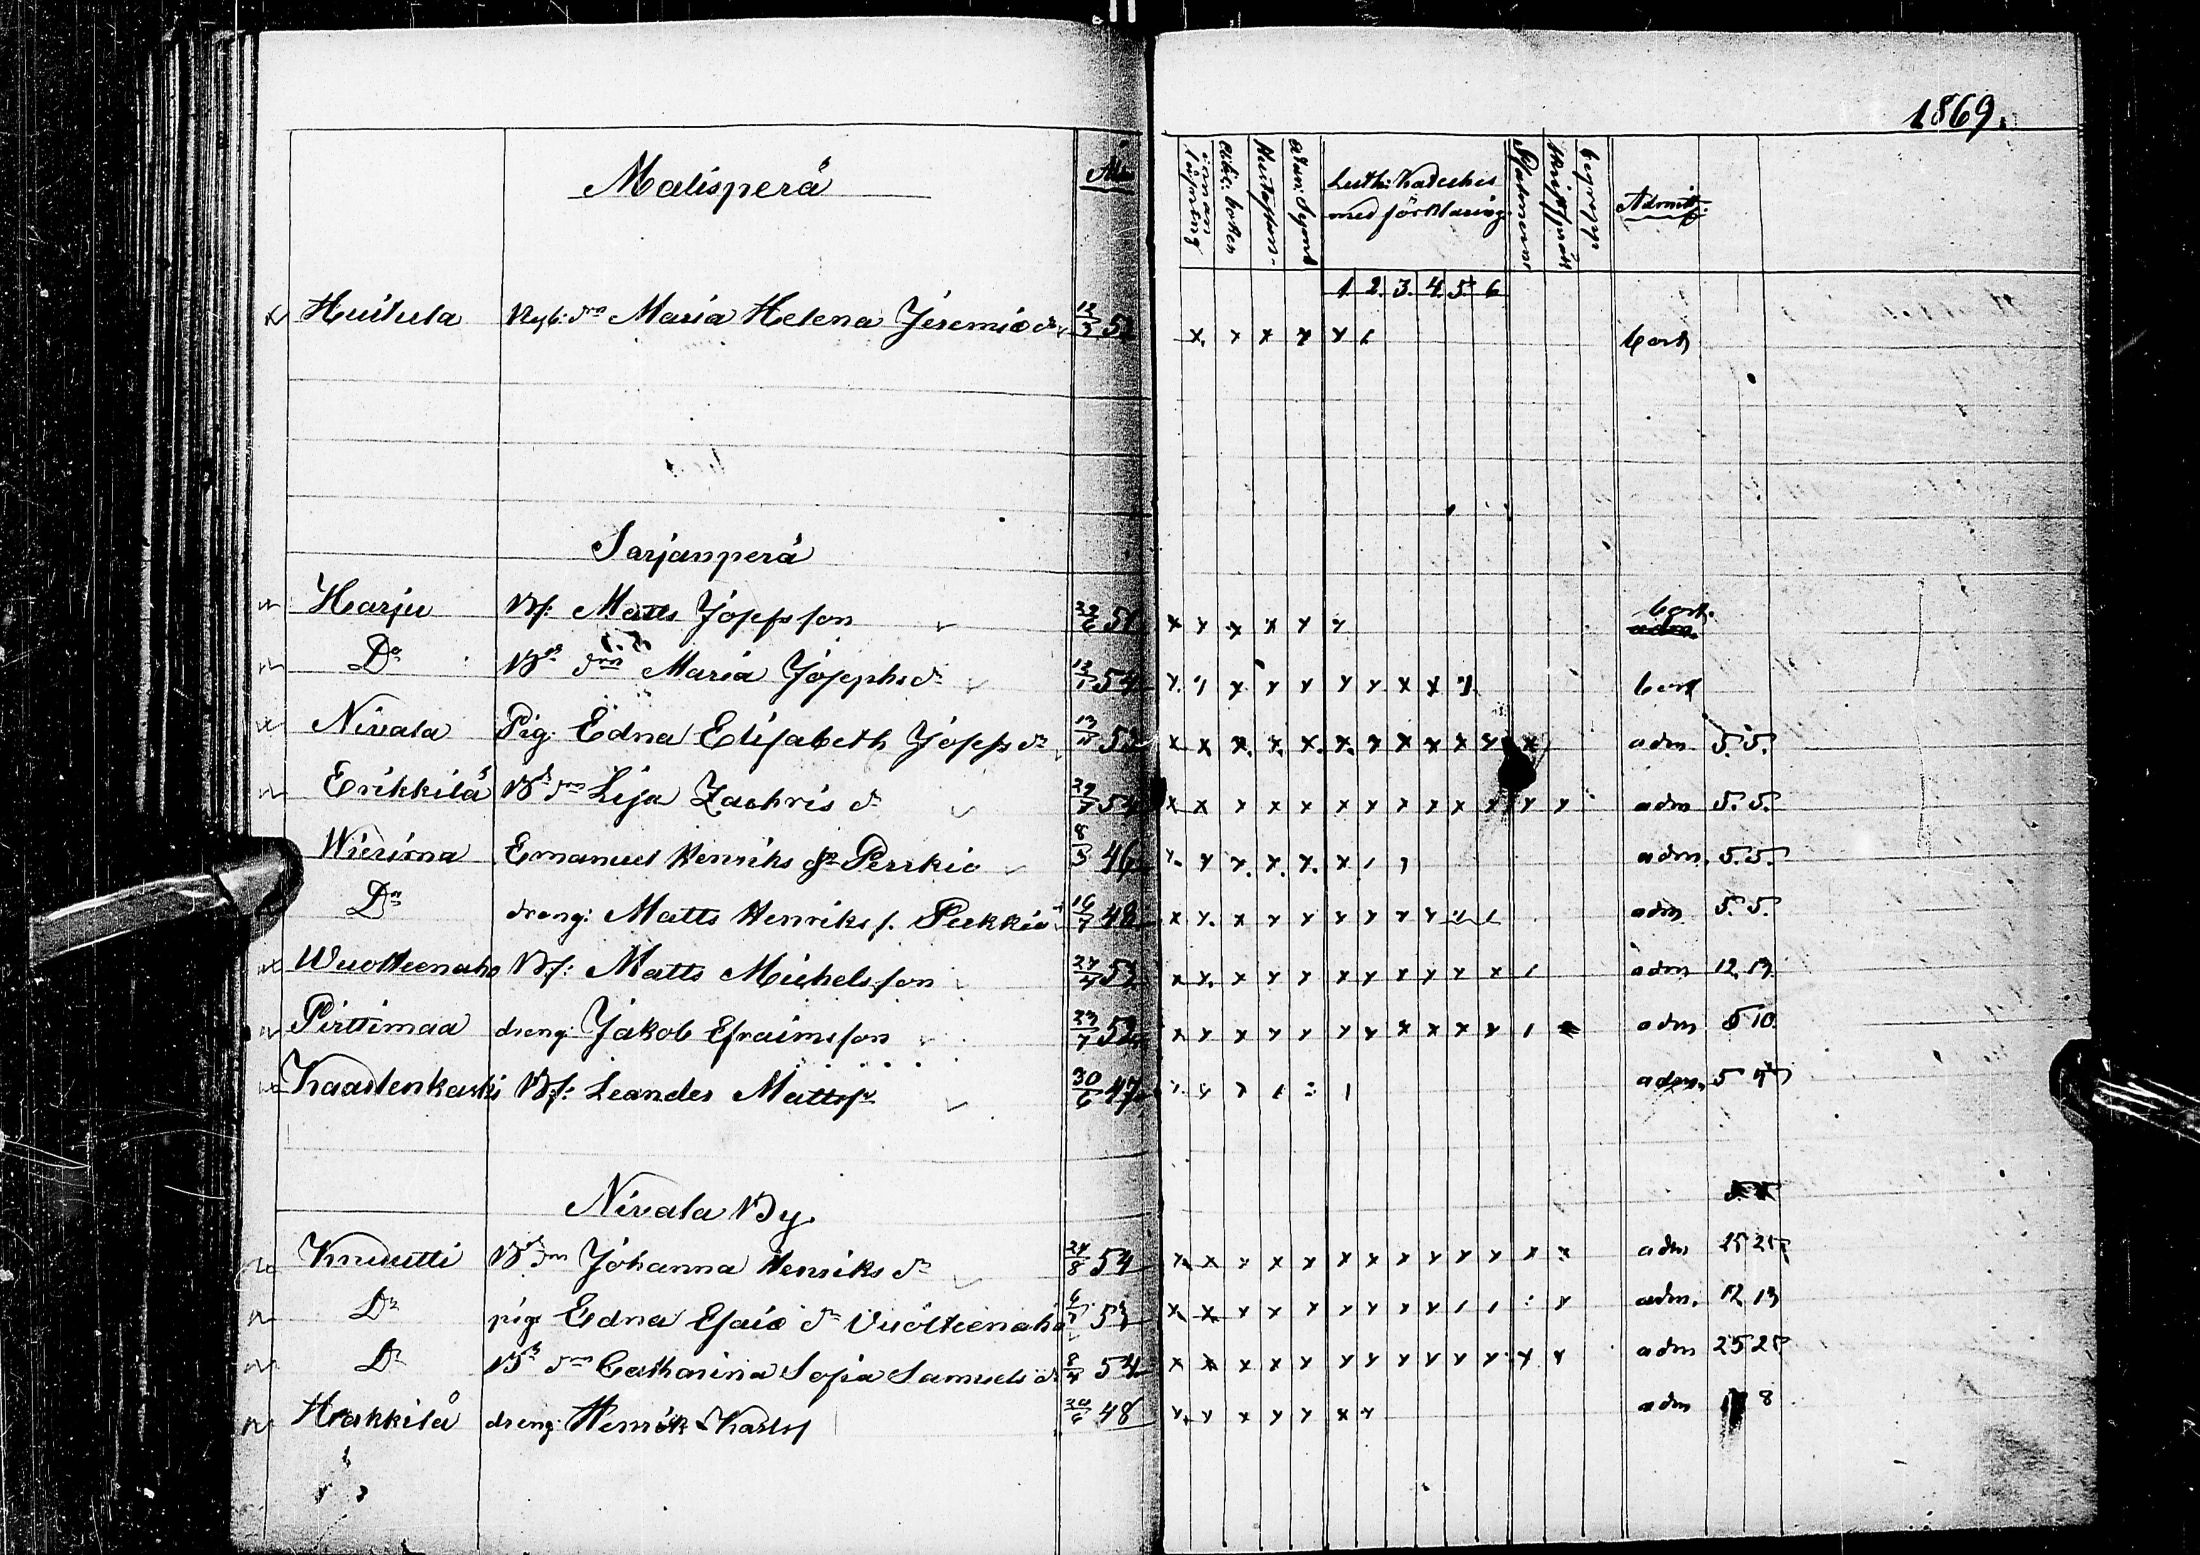 1869.
Malisperä
innan läsning
Abc. boken
Luth: Kateches
med förklaring
begrepp
Admitt:
1. 2. 3. 4. 5. 6
Huitula Nyb: drn Maria Helena Jeremiæ dr 12/3 52 x x x x x bort
Sarjanperä
Harju Bs: Matts Josefsson 6 51 x x x x x x bort. adm.
Do Bds drn Maria Josephs dr 12/1 54 x x x x x x x x bort
Nivala Pig: Edna Elisabeth Josefs dr 53 x x x x x x x x x x x x adm 5. 5.
Erikkilä Bds drn Lisa Zachris dr 29/7 54 x x x x x x x x x x x x x adm 5. 5.
Wierima Emanuel Henriks sn Perkiö 8/3 46 x x x x x x adm. 5. 5.
Do dreng: Matts Henriks s. Perkiö 16/7 48 x x x x x x x x x adm 5. 5.
Wuottenaho Bs: Matts Michelsson 24/4 52 x x x x x x x x x x x adm 12 13
Pirttimaa dreng: Jakob Efraimsson 23/7 52 x x x x x x x x x x x adm 5 10
Kaartenkaski Bs: Leander Mattss 30/6 47 adm. 5
Nivala By.
Knuutti Bds drn Johanna Henriks dr 24/8 54 x x x x x x x x x x x x x adm 25 25
Do pig: Edna Esaiæ dr Vuottenaho 6/7 53 x x x x x x x x x x adm. 12 13
Do Bds drn Catharina Sofia Samuels dr 8/4 54 x x x x x x x x x x x x x adm 25 25
Hakkila dreng: Henrik Karlss 6 48 x x x x x x x adm 8